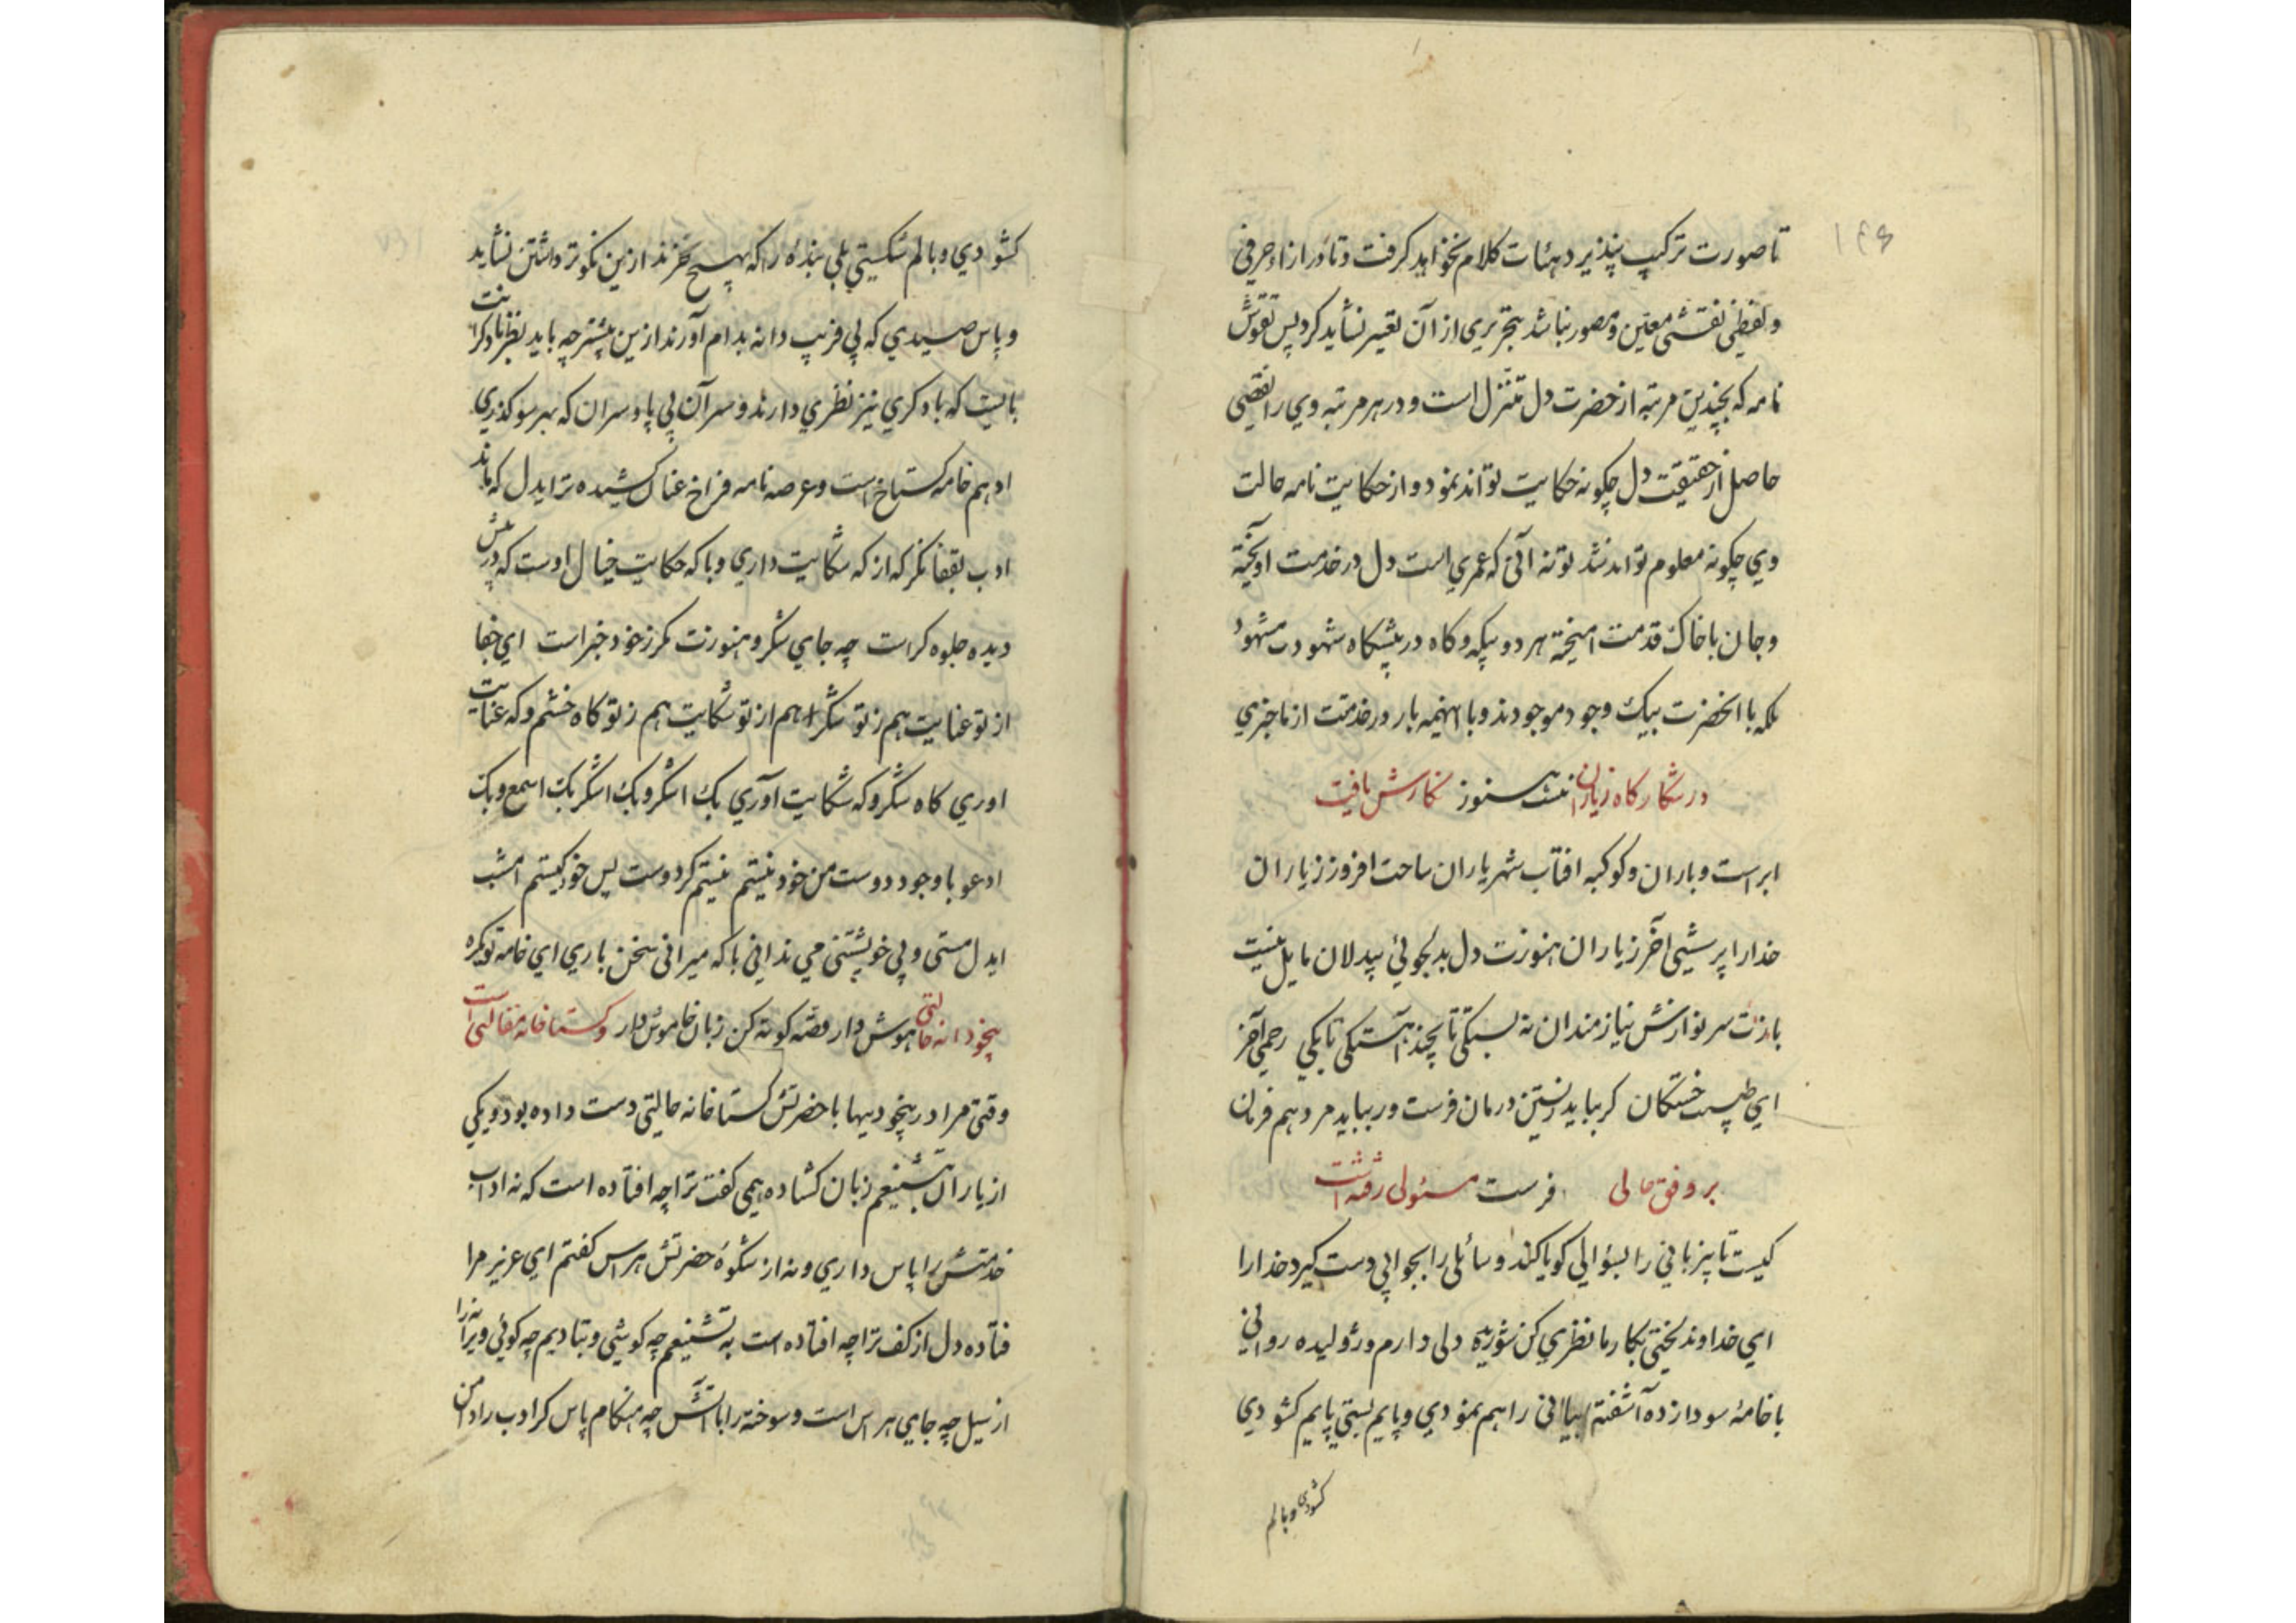 ۱۴۶
تا صورت ترکیب پنذیرد هئات کلام نخواهد کرفت و تا در ازاء حرفی
و لفظی نقشی معین و مصور نباشد بتحریری از آن تعبیر نشاید کرد پس نقوش
نامه که بچندین مرتبه از حضرت دل متنزل است و در هر مرتبه وی را نقصی
حاصل از حقیقت دل چکونه حکایت تواند نمود و از حکایت نامه حالت
وی چکونه معلوم تواند شد تو نه آنی که عمری است دل در خدمت اویخته
و جان با خاک قدمت امیخته هر دو بیکه و کاه در پیشکاه شهودت مشهود
بلکه با انحضرت بیک وجود موجودند و با اینهمه بار در خدمت از ما جزی
در شکار کاه زیاران نیست هنوز نکارش یافت
ابر است و باران و کوکبه افتاب شهریاران ساحت افروز زیاران
خدارا پرسشی اخر زیاران هنوزت دل بدلجوئی بیدلان مایل نیست
بازت سر نوازش نیازمندان نه بستکی تا بچند اهستکی تا بکی رحمی آخر
ای طبیب خستکان کر بباید زیستن درمان فرست ور بباید مرد هم فرمان
بر وفق حالی فرست مسئولی رفته است
کیست تا بیزبانی را بسؤالی کویا کند و سائلی را بجوابی دست کیرد خدارا
ای خداوند لختی بکار ما نظری کن شوریده دلی دارم و ژولیده روانی
با خامهٔ سودازده آشفته بیانی راهم نمودی و پایم بستی پایم کشودی
کشودی و بالم
کشودی و بالم شکستی بلی بندهٔ را که بهیچ نخرند ازین نکوتر داشتن نشاید
و پاس صیدی که بی فریب دانه بدام آورند ازین بیشتر چه باید بنظر نادکرانت
بایست که با دکری نیز نظری دارند و سر آن بی پا و سران که بهر سو کذری
ادهم خامه کستاخ است و عرصه نامه فراخ عنان کشیده تر ایدل که ماند
ادب بقفا نکر که از که شکایت داری و با که حکایت خیال اوست که در پیش
دیده جلوه کر است چه جای شکر و هنوزت مکر ز خود خبر است ای جفا
از تو عنایت هم ز تو شکر از تو شکایت هم ز تو کاه خشم و که عنایت
اوری کاه شکر و که شکایت آوری بک اشکو و بک اشکر بک اسمع و بک
ادعو با وجود دوست من خود نیستم نیستم کر دوست پس خود کیستم امشب
ایدل مستی و بی خویشتنی می ندانی با که میرانی سخن باری ای خامه تو یکره
بیخودانه حالتی هوش دار قصه کوته کن زبان خاموش دار و کستاخانه مقالتی است
وقتی مرا در بیخودیها با حضرتش کستاخانه حالتی دست داده بود و یکی
از یاران بتشنیعم زبان کشاده همی کفت ترا چه افتاده است که نه اداب
خدمتش را پاس داری و نه از شکوه حضرتش هراس کفتم ای عزیز مرا
فتاده دل از کف ترا چه افتاده است به تشنیعم چه کوشی و بتادیبم چه کوئی ویرانه را
از سیل چه جای هراس است و سوخته را با آتش چه هنکام پاس کر ادب را دامن